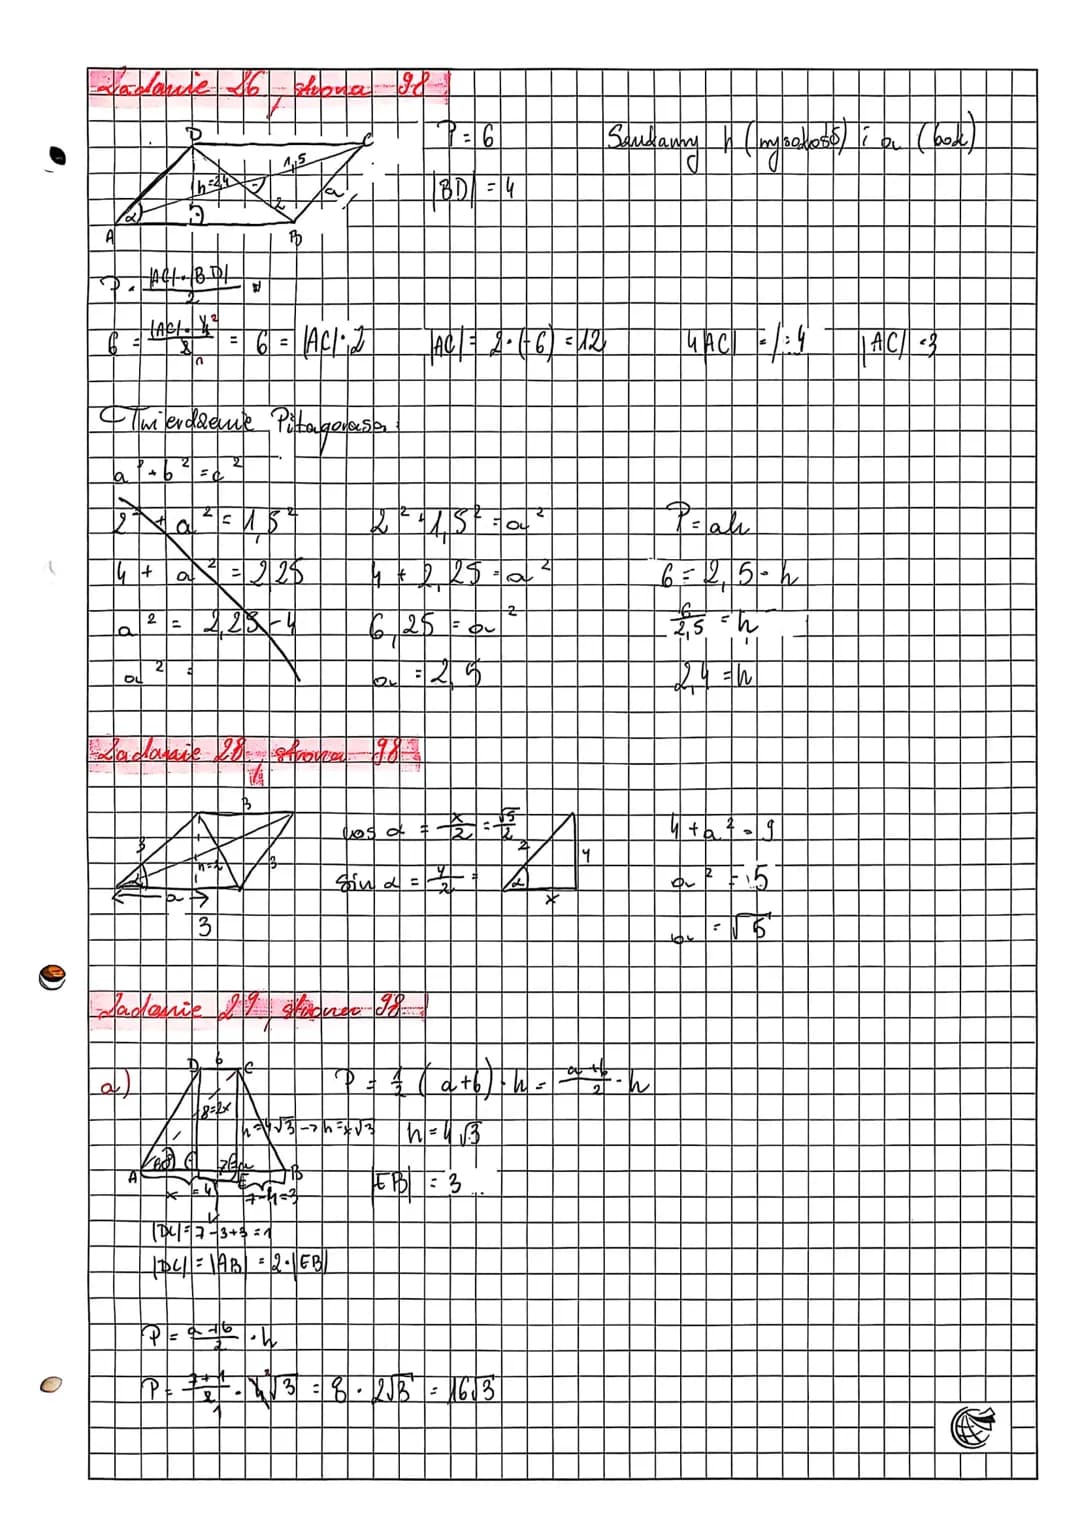 Zadanie 26, strona 98
D
C
1,5
h=2,4
a
2
α
A
B
P = 6
|BD| = 4
Szukamy h (wysokość) i a (bok)
P = |AC|·|BD| / 2
6 = |AC|·4 / 2 = 6 = |AC|·2
|AC| = 2·(-6) = 12
4|AC| = /:4
|AC| = 3
Twierdzenie Pitagorasa:
a² + b² = c²
2² + a² = 1,5²
4 + a² = 2,25
a² = 2,25 - 4
a² =
2² + 1,5² = a²
4 + 2,25 = a²
6,25 = a²
a = 2,5
P = ah
6 = 2,5·h
6/2,5 = h
2,4 = h
Zadanie 28, strona 98
3
3
h=2
3
α
a
3
cos α = x/2 = √5/2
sin α = y/2 =
2
y
α
x
4 + a² = 9
a² = 5
a = √5
Zadanie 29, strona 98
a)
D
b
C
8=2x
h=4√3 → h=x√3
60°
7=a
A
E
B
x = 4
7-4=3
P = ½ (a+b)·h = a+b/2 · h
h = 4√3
|EB| = 3
|DC| = 7-3+3 = 1
|DC| = |AB| = 2·|EB|
P = a+b/2 · h
P = 7+1/2 · 4√3 = 8 · 2√3 = 16√3